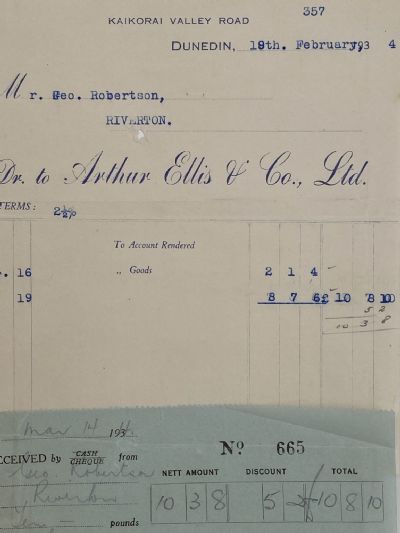 357
KAIKORAI VALLEY ROAD
DUNEDIN, 19th. February, 193 4
Mr. Geo. Robertson,
RIVERTON.
Dr. to Arthur Ellis & Co., Ltd.
TERMS: 2½%
To Account Rendered
. 16 „ Goods 2 1 4
19 8 7 6 £ 10 8 10
5 2
10 3 8
Mar 14 1934.
No. 665
CEIVED by CASH CHEQUE from
Geo. Robertson NETT AMOUNT DISCOUNT TOTAL
Riverton 10 3 8 5 2 10 8 10
pounds